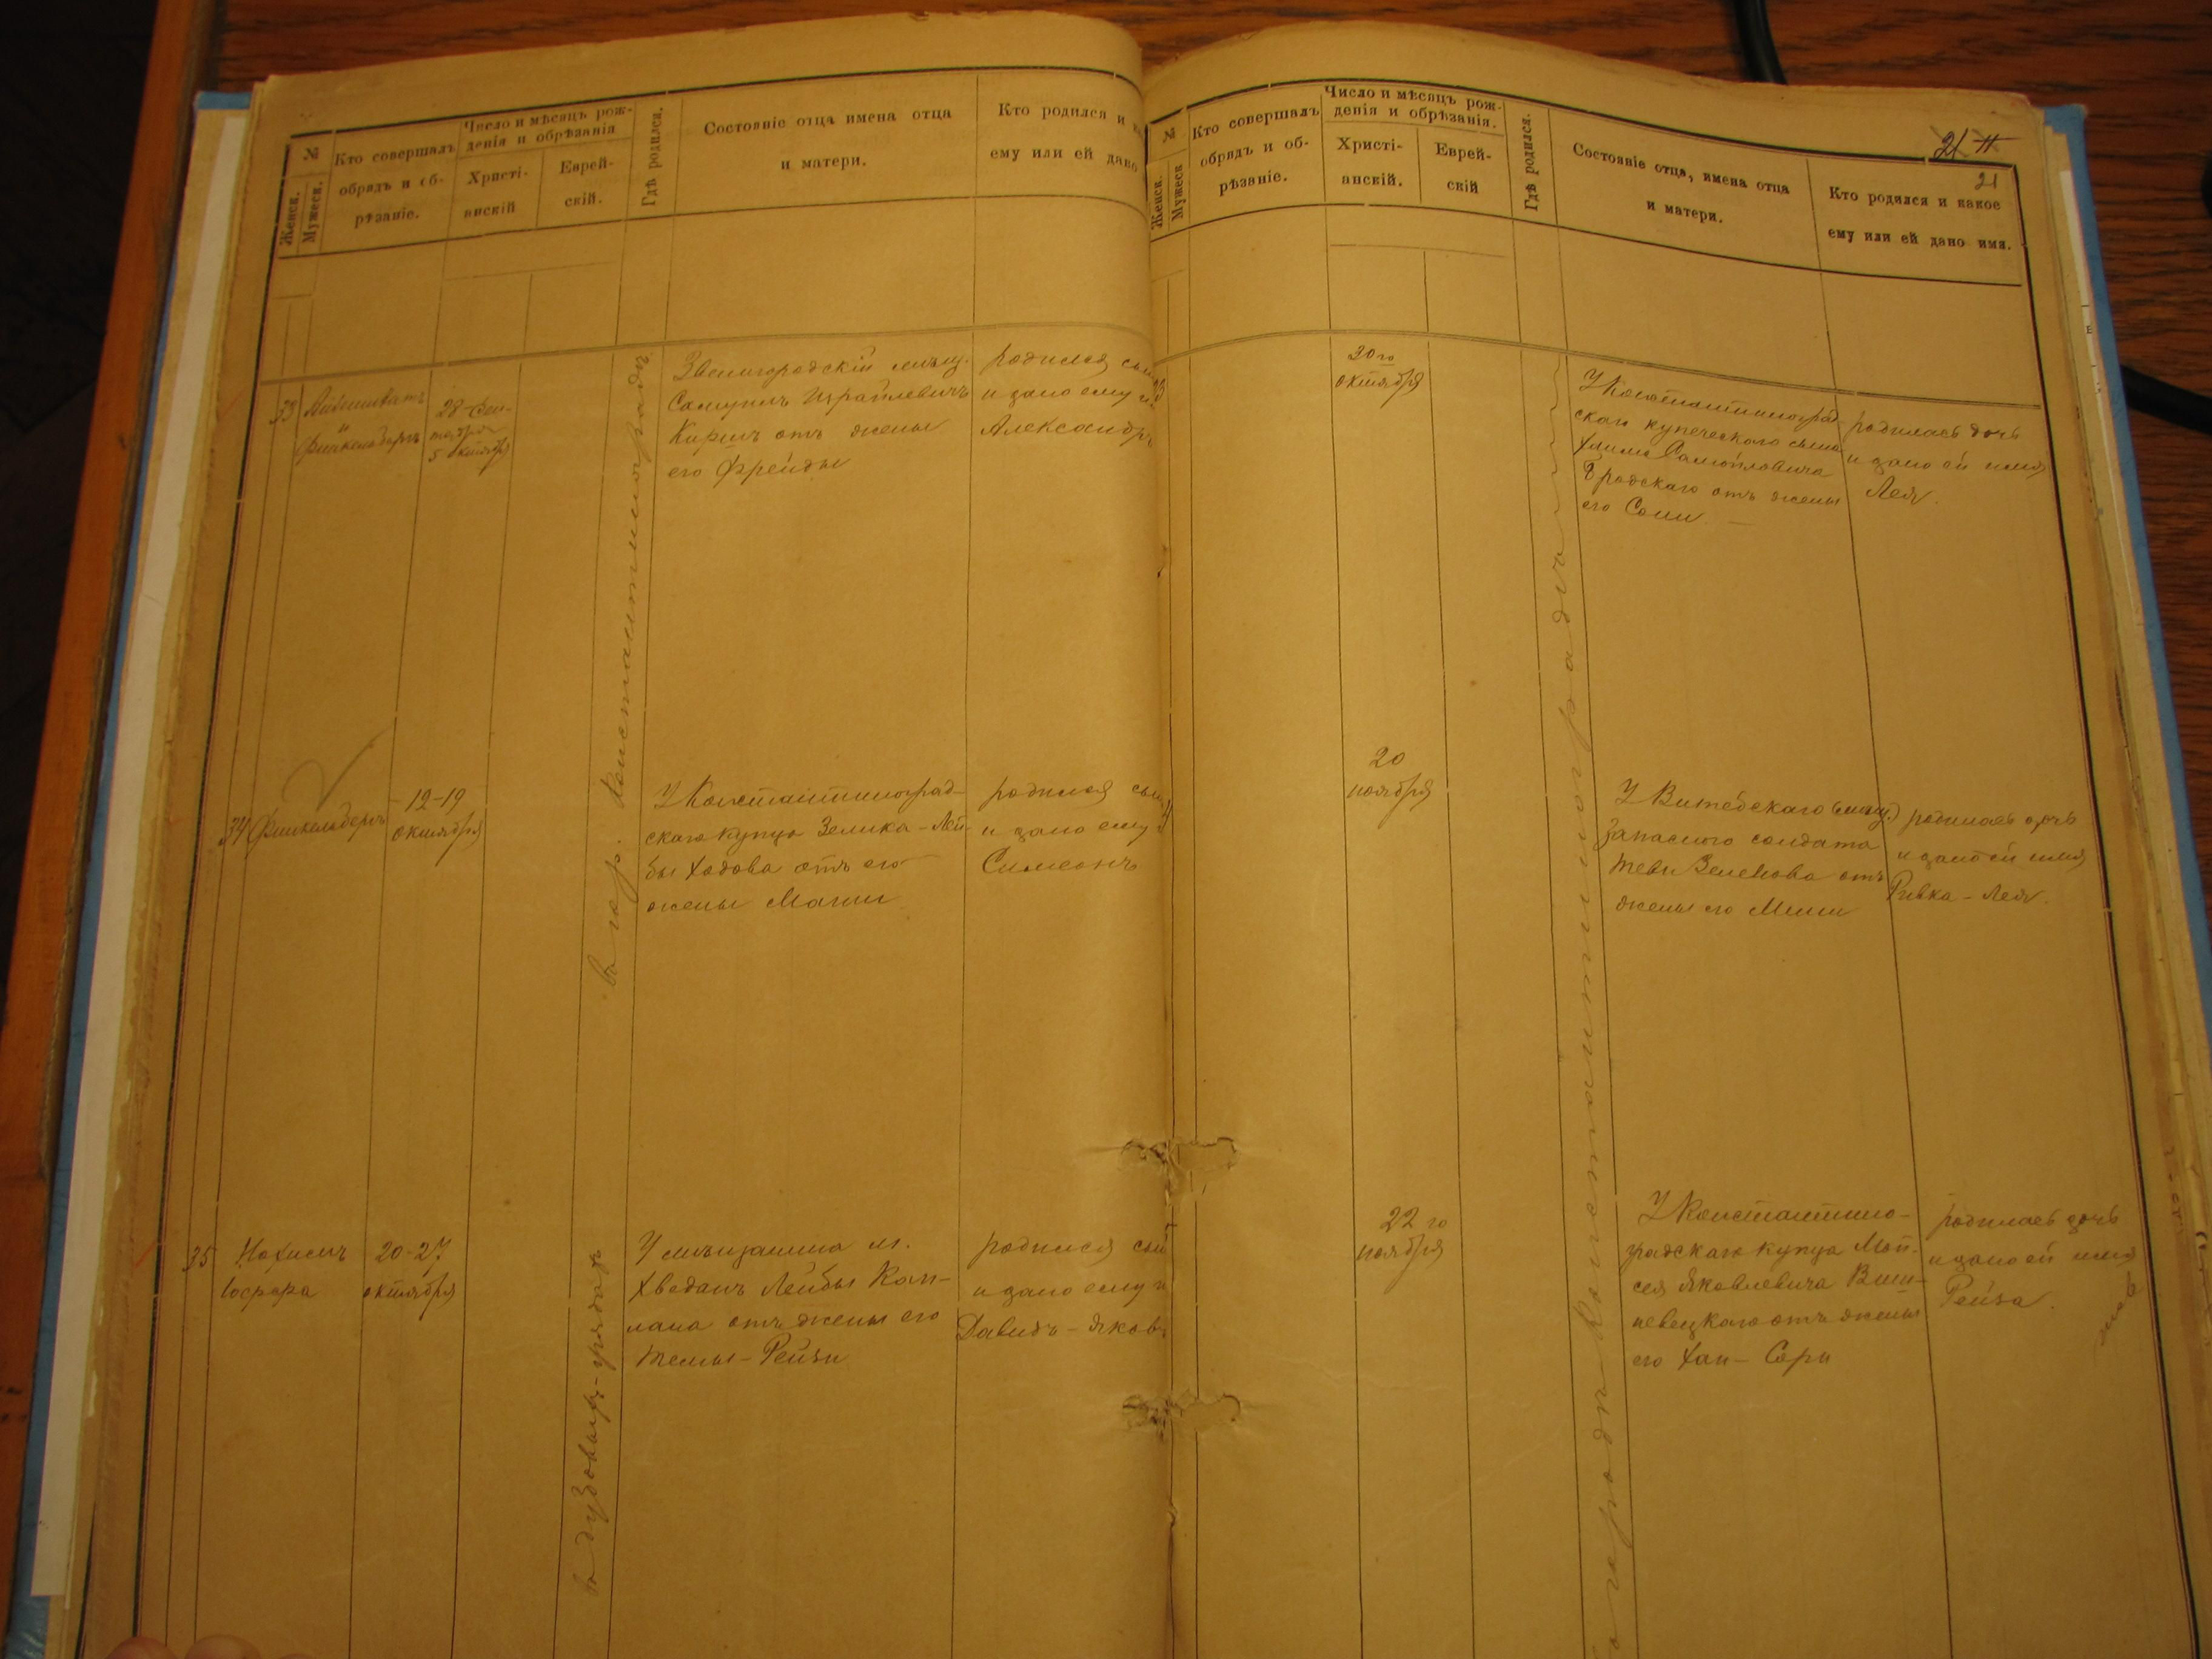 №
Женск.
Мужеск.
Кто совершалъ
обрядъ и об-
рѣзаніе.
Число и мѣсяцъ рож-
денія и обрѣзанія
Христі-
анскій
Еврей-
скій.
Гдѣ родился.
Состояніе отца имена отца
и матери.
Кто родился и
ему или ей дано
33
28 Сен-
тября
5 октября
въ гор. Константиноградѣ
Звенигородскій мѣщ.
Самуилъ Израилевичъ
отъ жены
его Фрейды
родился сы
и дано ему
Александръ
34
Финкельбергъ
12-19
октября
У Константиноград-
скаго купца Зелика-Лей-
бы Ходова отъ его
жены Мани
родился сы
и дано ему
Симеонъ
35
20-27
октября
У мѣщанина м.
Лейбы Кап-
лана отъ жены его
Темы-Рейзи
родился сы
и дано ему
Давидъ-Яковъ
21
21
№
Женск.
Мужеск
Кто совершалъ
обрядъ и об-
рѣзаніе.
Число и мѣсяцъ рож-
денія и обрѣзанія.
Христі-
анскій.
Еврей-
скій
Гдѣ родился.
Состояніе отца, имена отца
и матери.
Кто родился и какое
ему или ей дано имя.
30го
октября
городѣ Константиноградѣ
У Константиноград
скаго купеческаго сына
Хаима Самойловича
Бродскаго отъ жены
его Сони
родилась дочь
и дано ей имя
Лея.
20
ноября
У Витебскаго
запаснаго солдата
отъ
жены его
родилась дочь
и дано ей имя
Ривка-Лея.
22 го
ноября
У Константино-
градскаго купца Мой-
сея Яковлевича Виш-
невецкаго отъ жены
его Хаи-Сори
родилась дочь
и дано ей имя
Рейза.